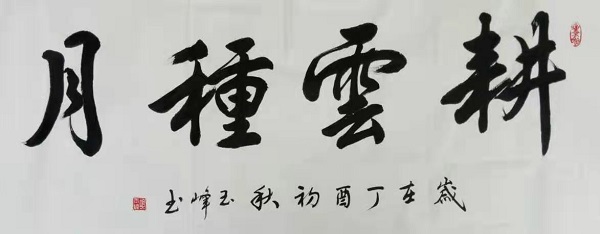 耕雲種月
歲在丁酉初秋玉峰书